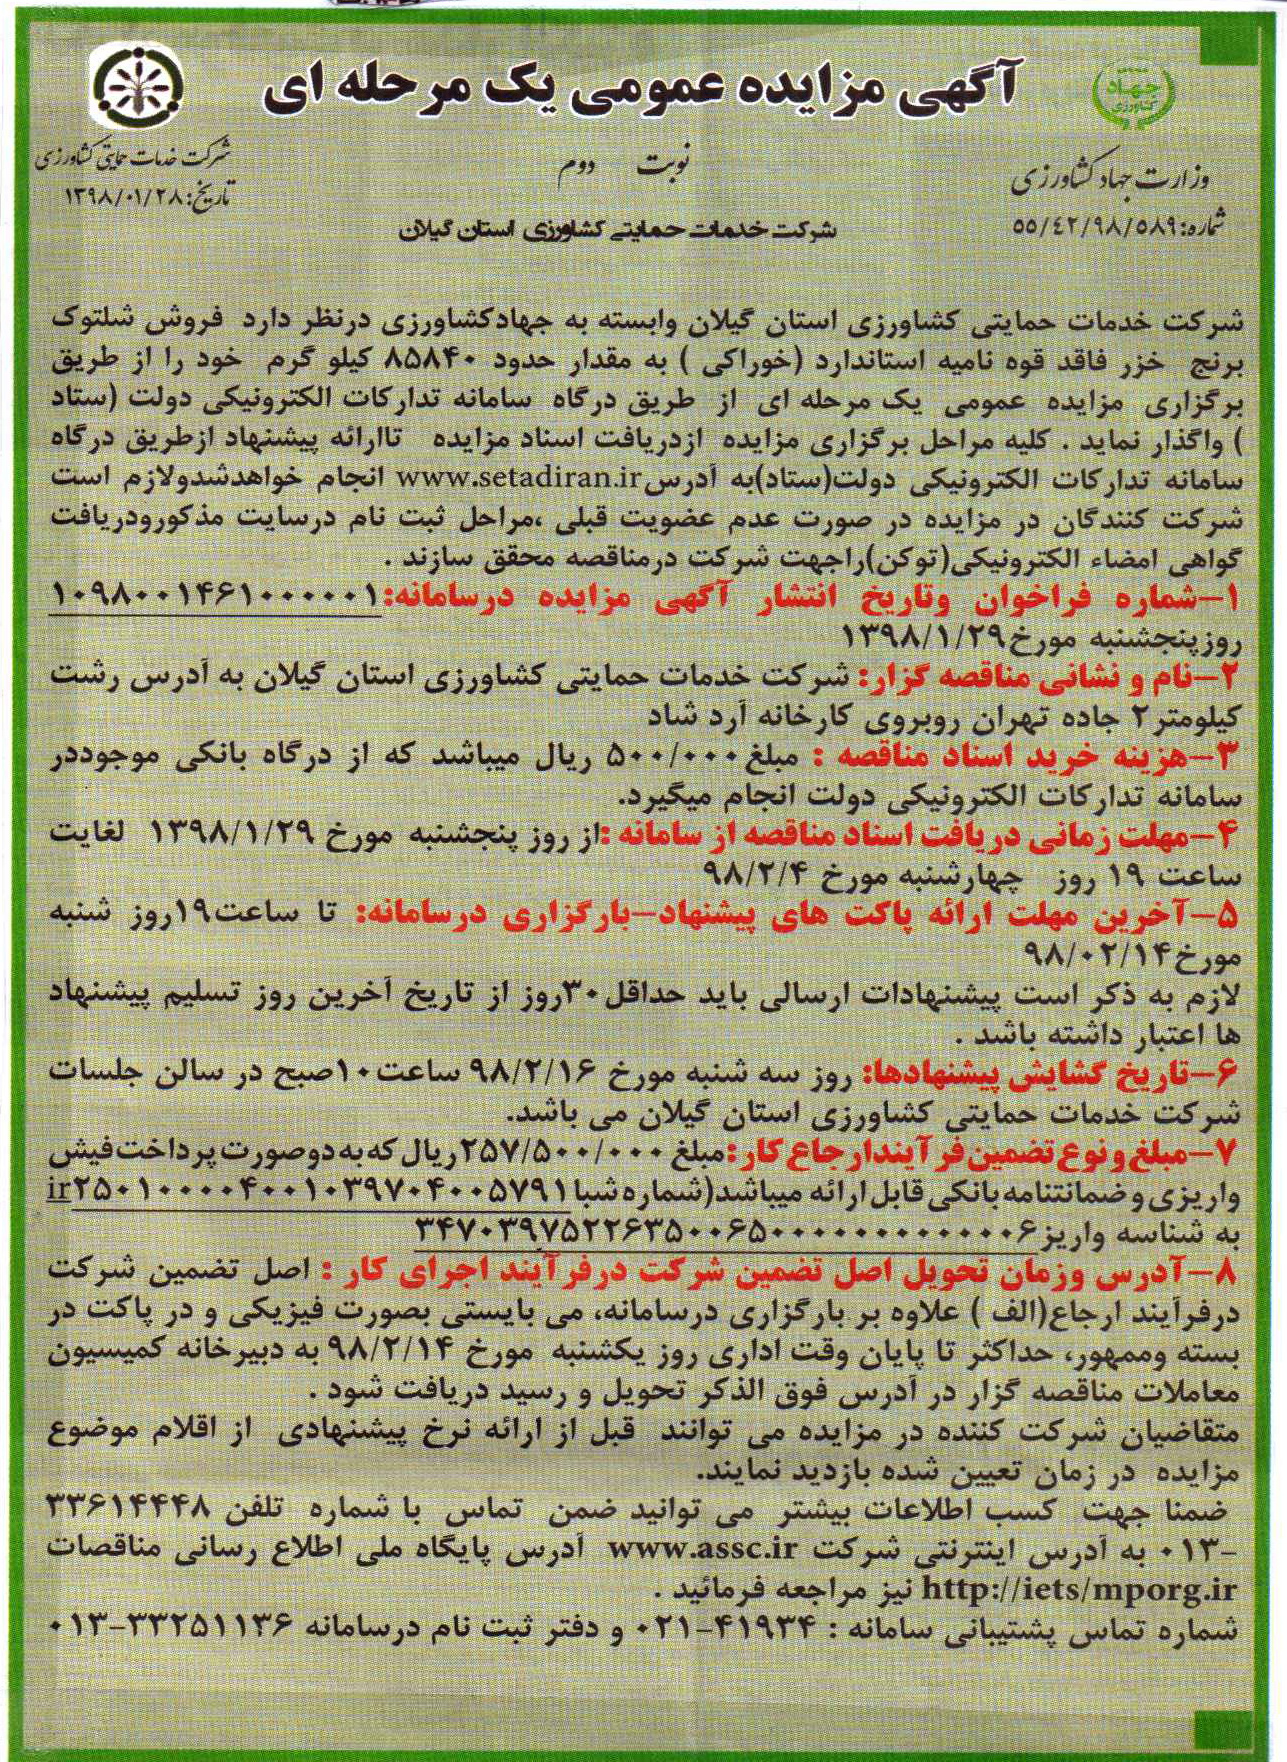 آگهی مزایده عمومی یک مرحله ای
جهاد
کشاورزی
وزارت جهاد کشاورزی
شماره: ۵۵/۴۲/۹۸/۵۸۹
نوبت دوم
شرکت خدمات حمایتی کشاورزی
تاریخ: ۱۳۹۸/۰۱/۲۸
شرکت خدمات حمایتی کشاورزی استان گیلان
شرکت خدمات حمایتی کشاورزی استان گیلان وابسته به جهادکشاورزی درنظر دارد فروش شلتوک
برنج خزر فاقد قوه نامیه استاندارد (خوراکی ) به مقدار حدود ۸۵۸۴۰ کیلو گرم خود را از طریق
برگزاری مزایده عمومی یک مرحله ای از طریق درگاه سامانه تدارکات الکترونیکی دولت (ستاد
) واگذار نماید . کلیه مراحل برگزاری مزایده ازدریافت اسناد مزایده تاارائه پیشنهاد ازطریق درگاه
سامانه تدارکات الکترونیکی دولت(ستاد)به آدرس www.setadiran.ir انجام خواهدشدولازم است
شرکت کنندگان در مزایده در صورت عدم عضویت قبلی ،مراحل ثبت نام درسایت مذکورودریافت
گواهی امضاء الکترونیکی(توکن)راجهت شرکت درمناقصه محقق سازند .
۱-شماره فراخوان وتاریخ انتشار آگهی مزایده درسامانه:۱۰۹۸۰۰۱۴۶۱۰۰۰۰۰۱
روزپنجشنبه مورخ۱۳۹۸/۱/۲۹
۲-نام و نشانی مناقصه گزار: شرکت خدمات حمایتی کشاورزی استان گیلان به آدرس رشت
کیلومتر۲ جاده تهران روبروی کارخانه آرد شاد
۳-هزینه خرید اسناد مناقصه : مبلغ ۵۰۰/۰۰۰ ریال میباشد که از درگاه بانکی موجوددر
سامانه تدارکات الکترونیکی دولت انجام میگیرد.
۴-مهلت زمانی دریافت اسناد مناقصه از سامانه :از روز پنجشنبه مورخ ۱۳۹۸/۱/۲۹ لغایت
ساعت ۱۹ روز چهارشنبه مورخ ۹۸/۲/۴
۵-آخرین مهلت ارائه پاکت های پیشنهاد-بارگزاری درسامانه: تا ساعت۱۹روز شنبه
مورخ۹۸/۰۲/۱۴
لازم به ذکر است پیشنهادات ارسالی باید حداقل۳۰روز از تاریخ آخرین روز تسلیم پیشنهاد
ها اعتبار داشته باشد .
۶-تاریخ گشایش پیشنهادها: روز سه شنبه مورخ ۹۸/۲/۱۶ ساعت۱۰صبح در سالن جلسات
شرکت خدمات حمایتی کشاورزی استان گیلان می باشد.
۷-مبلغ ونوع تضمین فرآیندارجاع کار:مبلغ ۲۵۷/۵۰۰/۰۰۰ریال که به دوصورت پرداخت فیش
واریزی و ضمانتنامه بانکی قابل ارائه میباشد(شماره شبا ir۲۵۰۱۰۰۰۰۴۰۰۱۰۳۹۷۰۴۰۰۵۷۹۱
به شناسه واریز ۳۴۷۰۳۹۷۵۲۲۶۳۵۰۰۶۵۰۰۰۰۰۰۰۰۰۰۰۰۰۶
۸-آدرس وزمان تحویل اصل تضمین شرکت درفرآیند اجرای کار : اصل تضمین شرکت
درفرآیند ارجاع(الف ) علاوه بر بارگزاری درسامانه، می بایستی بصورت فیزیکی و در پاکت در
بسته وممهور، حداکثر تا پایان وقت اداری روز یکشنبه مورخ ۹۸/۲/۱۴ به دبیرخانه کمیسیون
معاملات مناقصه گزار در آدرس فوق الذکر تحویل و رسید دریافت شود .
متقاضیان شرکت کننده در مزایده می توانند قبل از ارائه نرخ پیشنهادی از اقلام موضوع
مزایده در زمان تعیین شده بازدید نمایند.
ضمنا جهت کسب اطلاعات بیشتر می توانید ضمن تماس با شماره تلفن ۳۳۶۱۴۴۴۸
-۰۱۳ به آدرس اینترنتی شرکت www.assc.ir آدرس پایگاه ملی اطلاع رسانی مناقصات
http://iets/mporg.ir نیز مراجعه فرمائید .
شماره تماس پشتیبانی سامانه : ۴۱۹۳۴-۰۲۱ و دفتر ثبت نام درسامانه ۳۳۲۵۱۱۳۶-۰۱۳